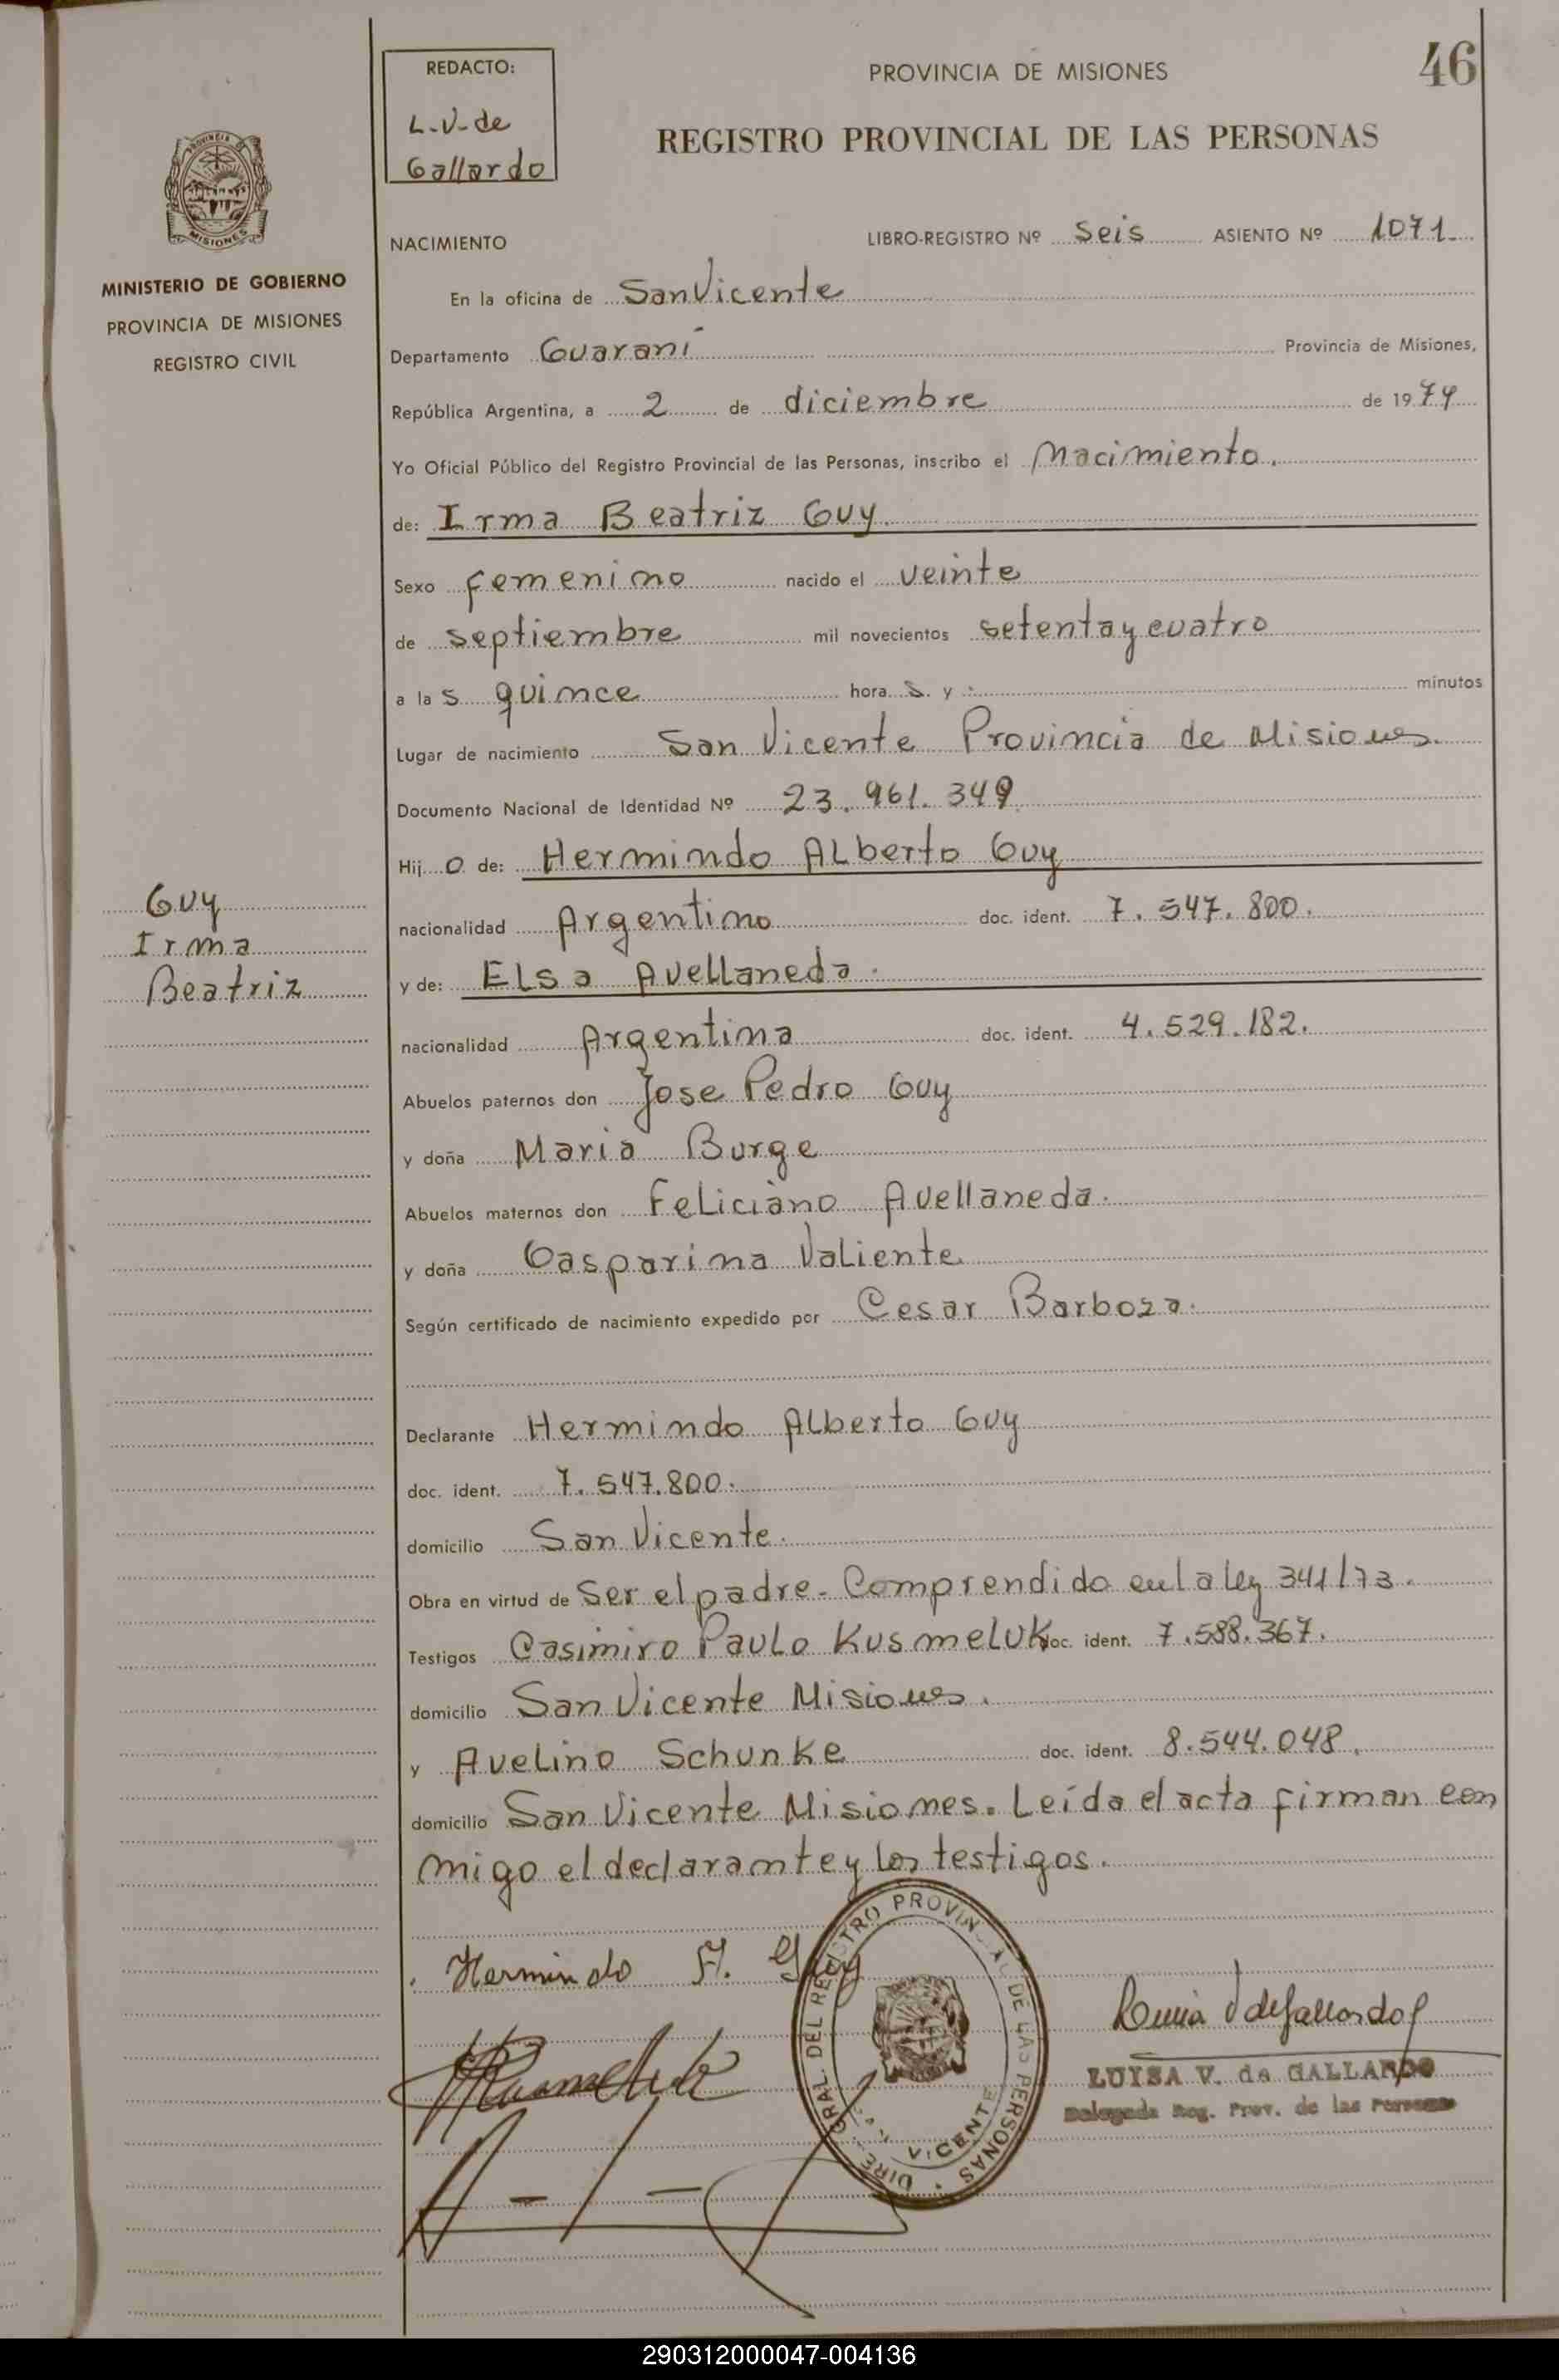 REDACTO:
L-V-de
Gallardo
PROVINCIA DE MISIONES
46
REGISTRO PROVINCIAL DE LAS PERSONAS
PROVINCIA DE
MISIONES
MINISTERIO DE GOBIERNO
PROVINCIA DE MISIONES
REGISTRO CIVIL
NACIMIENTO LIBRO-REGISTRO Nº Seis ASIENTO Nº 1071
En la oficina de San Vicente
Departamento Guarani Provincia de Misiones,
República Argentina, a 2 de diciembre de 1974
Yo Oficial Público del Registro Provincial de las Personas, inscribo el Nacimiento.
de: Irma Beatriz Guy
Sexo femenino nacido el veinte
de septiembre mil novecientos setenta y cuatro
a las quince horas y : minutos
Lugar de nacimiento San Vicente Provincia de Misiones.
Documento Nacional de Identidad Nº 23.961.349
Hijo de: Hermindo ALberto Guy
nacionalidad Argentino doc. ident. 7.547.800.
y de: ELsa Avellaneda.
nacionalidad Argentina doc. ident. 4.529.182.
Abuelos paternos don Jose Pedro Guy
y doña Maria Burge
Abuelos maternos don Feliciano Avellaneda.
y doña Gasparina Valiente
Según certificado de nacimiento expedido por Cesar Barboza.
Guy
Irma
Beatriz
Declarante Hermindo ALberto Guy
doc. ident. 7.547.800.
domicilio San Vicente.
Obra en virtud de Ser el padre. Comprendido en la ley 341/73.
Testigos Casimiro Paulo Kusmeluk doc. ident. 7.588.367.
domicilio San Vicente Misiones.
y Avelino Schunke doc. ident. 8.544.048.
domicilio San Vicente Misiones. Leída el acta firman con
migo el declarante y los testigos.
Hermindo A. Guy
DIRE. GRAL. DEL REGISTRO PROVINCIAL DE LAS PERSONAS
VICENTE
LUISA V. de GALLARDO
Delegada Reg. Prov. de las Personas
290312000047-004136